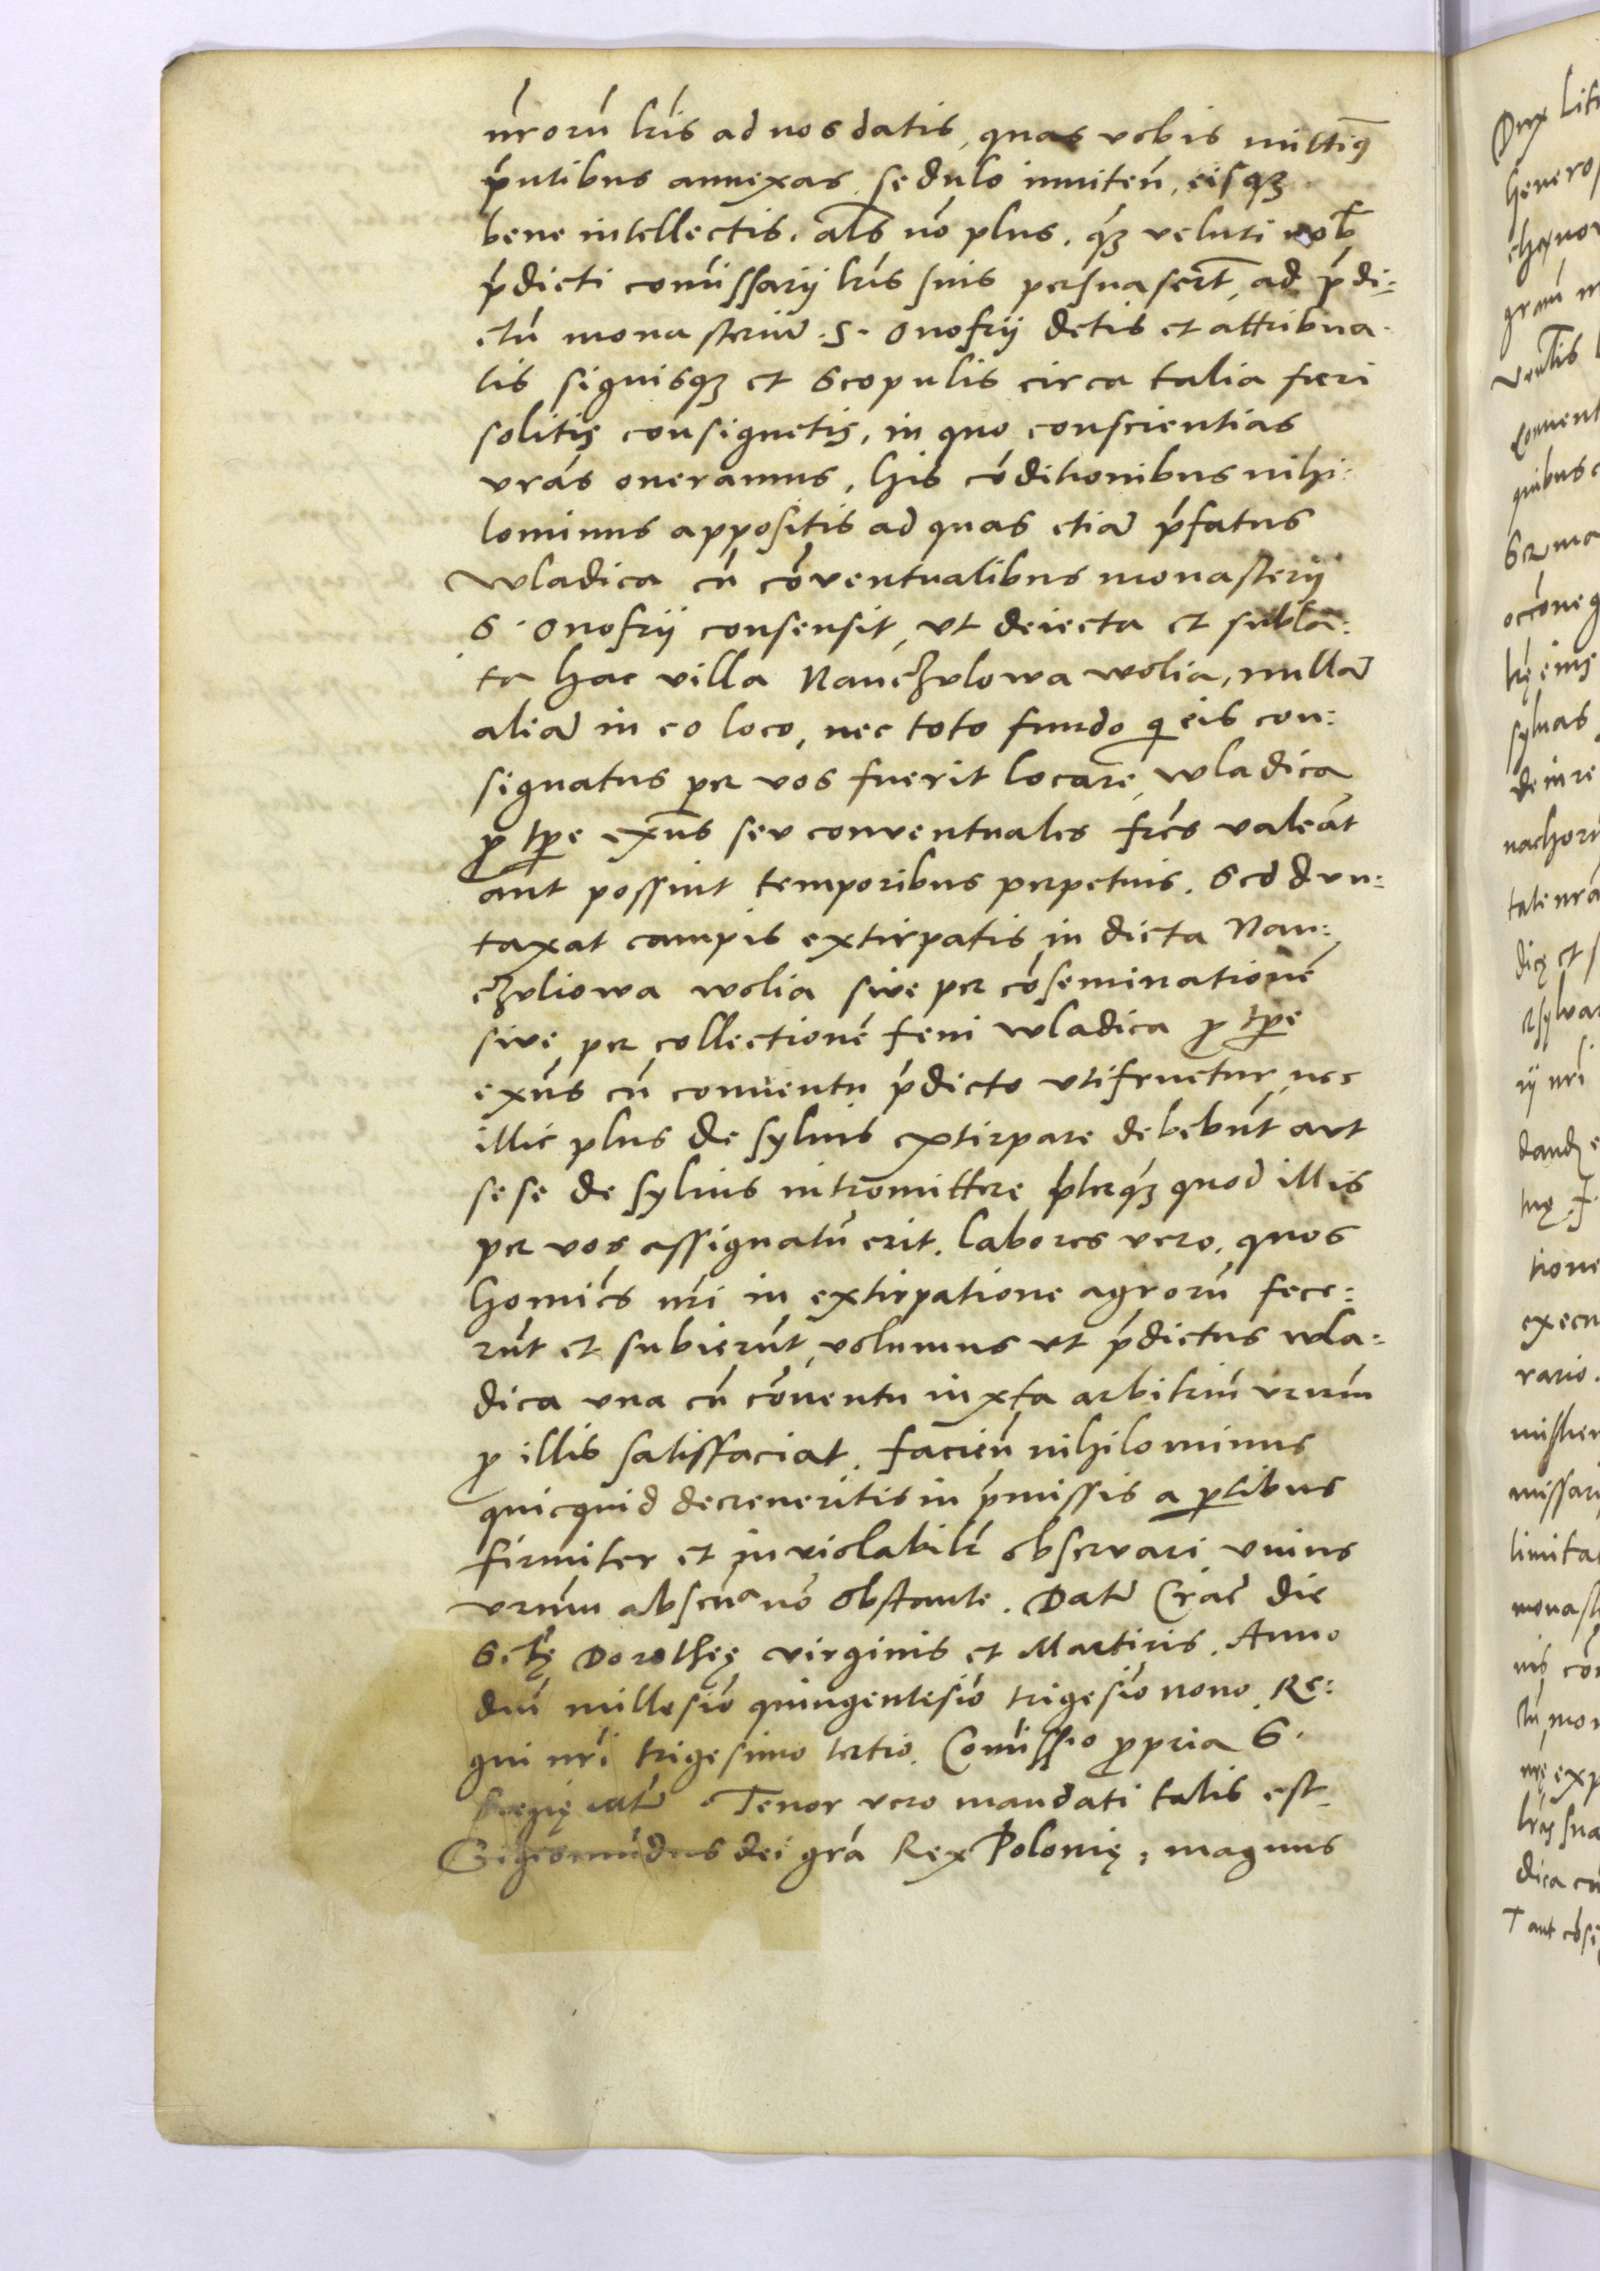 nrorũ lris ad nos datis, quas vobis mittim9
p̃ntibus annexas, sedulo inniteñ, eisq3
bene intellectis, als nõ plus, q̃3 veluti nob
p̃dicti comissarij lris suis persuasert̃, ad p̃di:
ctũ monasteriũ . S . Onofrij detis et attribua
tis signisq3 et Scopulis circa talia fieri
solitis consignetis, in quo conscientias
vrãs oneramus, His cõditionibus nihi:
lominus appositis ad quas etiã p̃fatus
Wladica cũ cõventualibus monasterij
S . Onofrij consensit, vt deiecta et subla:
ta hac villa Nanczulowa wolia, nullã
aliã in eo loco, nec toto fundo qi eis con:
signatus per vos fuerit locare, wladica
p tpe exñs seu conventuales frẽs valeãt
aut possint temporibus perpetuis. Sed dun:
taxat campis extirpatis in dicta Nan:
czuliowa wolia sive per cõseminationẽ
sive per collectionẽ feni wladica p tpe
exñs cũ conuentu p̃dicto vtifruetur nec
illic plus de syluis extirpare debebũt aut
sese de syluis intromittere p̃terq̃3 quod illis
per vos assignatũ erit. Labores vero, quos
homiẽs nri in extirpatione agrorũ fece:
rũt et subierũt, volumus vt p̃dictus wla:
dica vna cũ cõnentu iuxta arbitriũ vrum
p illis satisfaciat. facieñ nihilominus
quicquid decreueritis in p̃missis a ptibus
firmiter et inviolabilr̃ observari vnius
vrũm absenã nõ obstante. Datũ Crac̃ die
Sctę Dorotheę virginis et Martiris. Anno
dnĩ millesiõ quingentesiõ trigesiõ nono, Re:
gni nrĩ trigesimo tertio. Comissio ppria S.
Regię mtis̃ . Tenor vero mandati talis est
Sigismũdus dei grã Rex Polonię, magnus